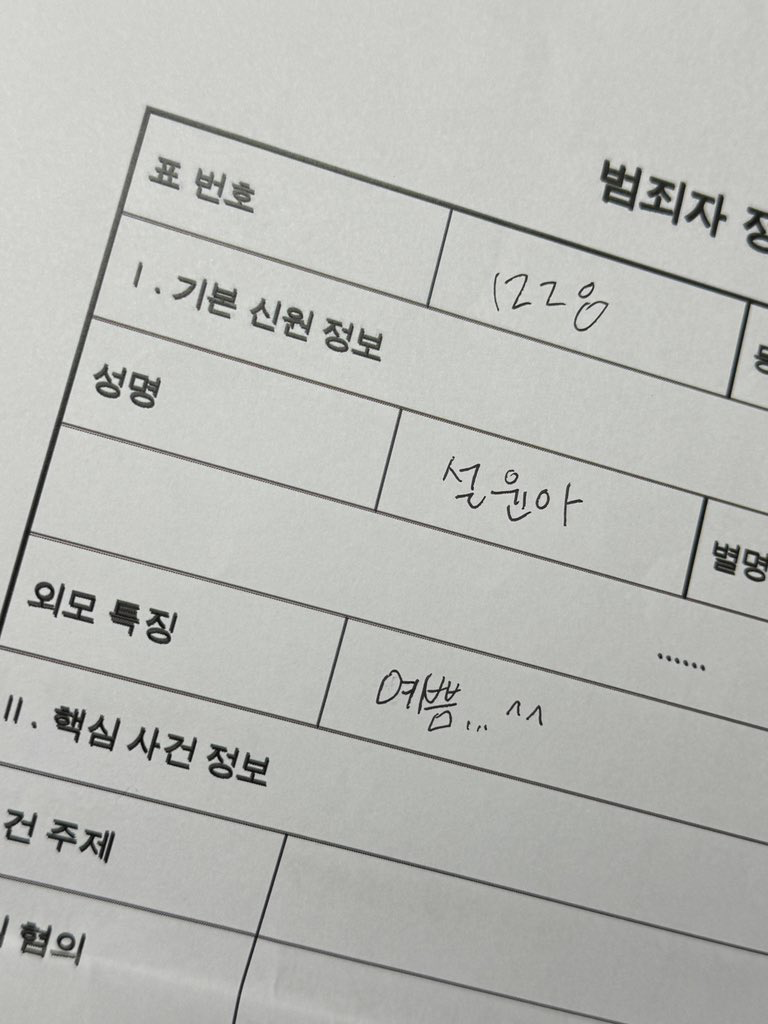 범죄자
표 번호 1228
Ⅰ. 기본 신원 정보
성명 설윤아 별명
......
외모 특징 예쁨... ^^
Ⅱ. 핵심 사건 정보
건 주제
혐의